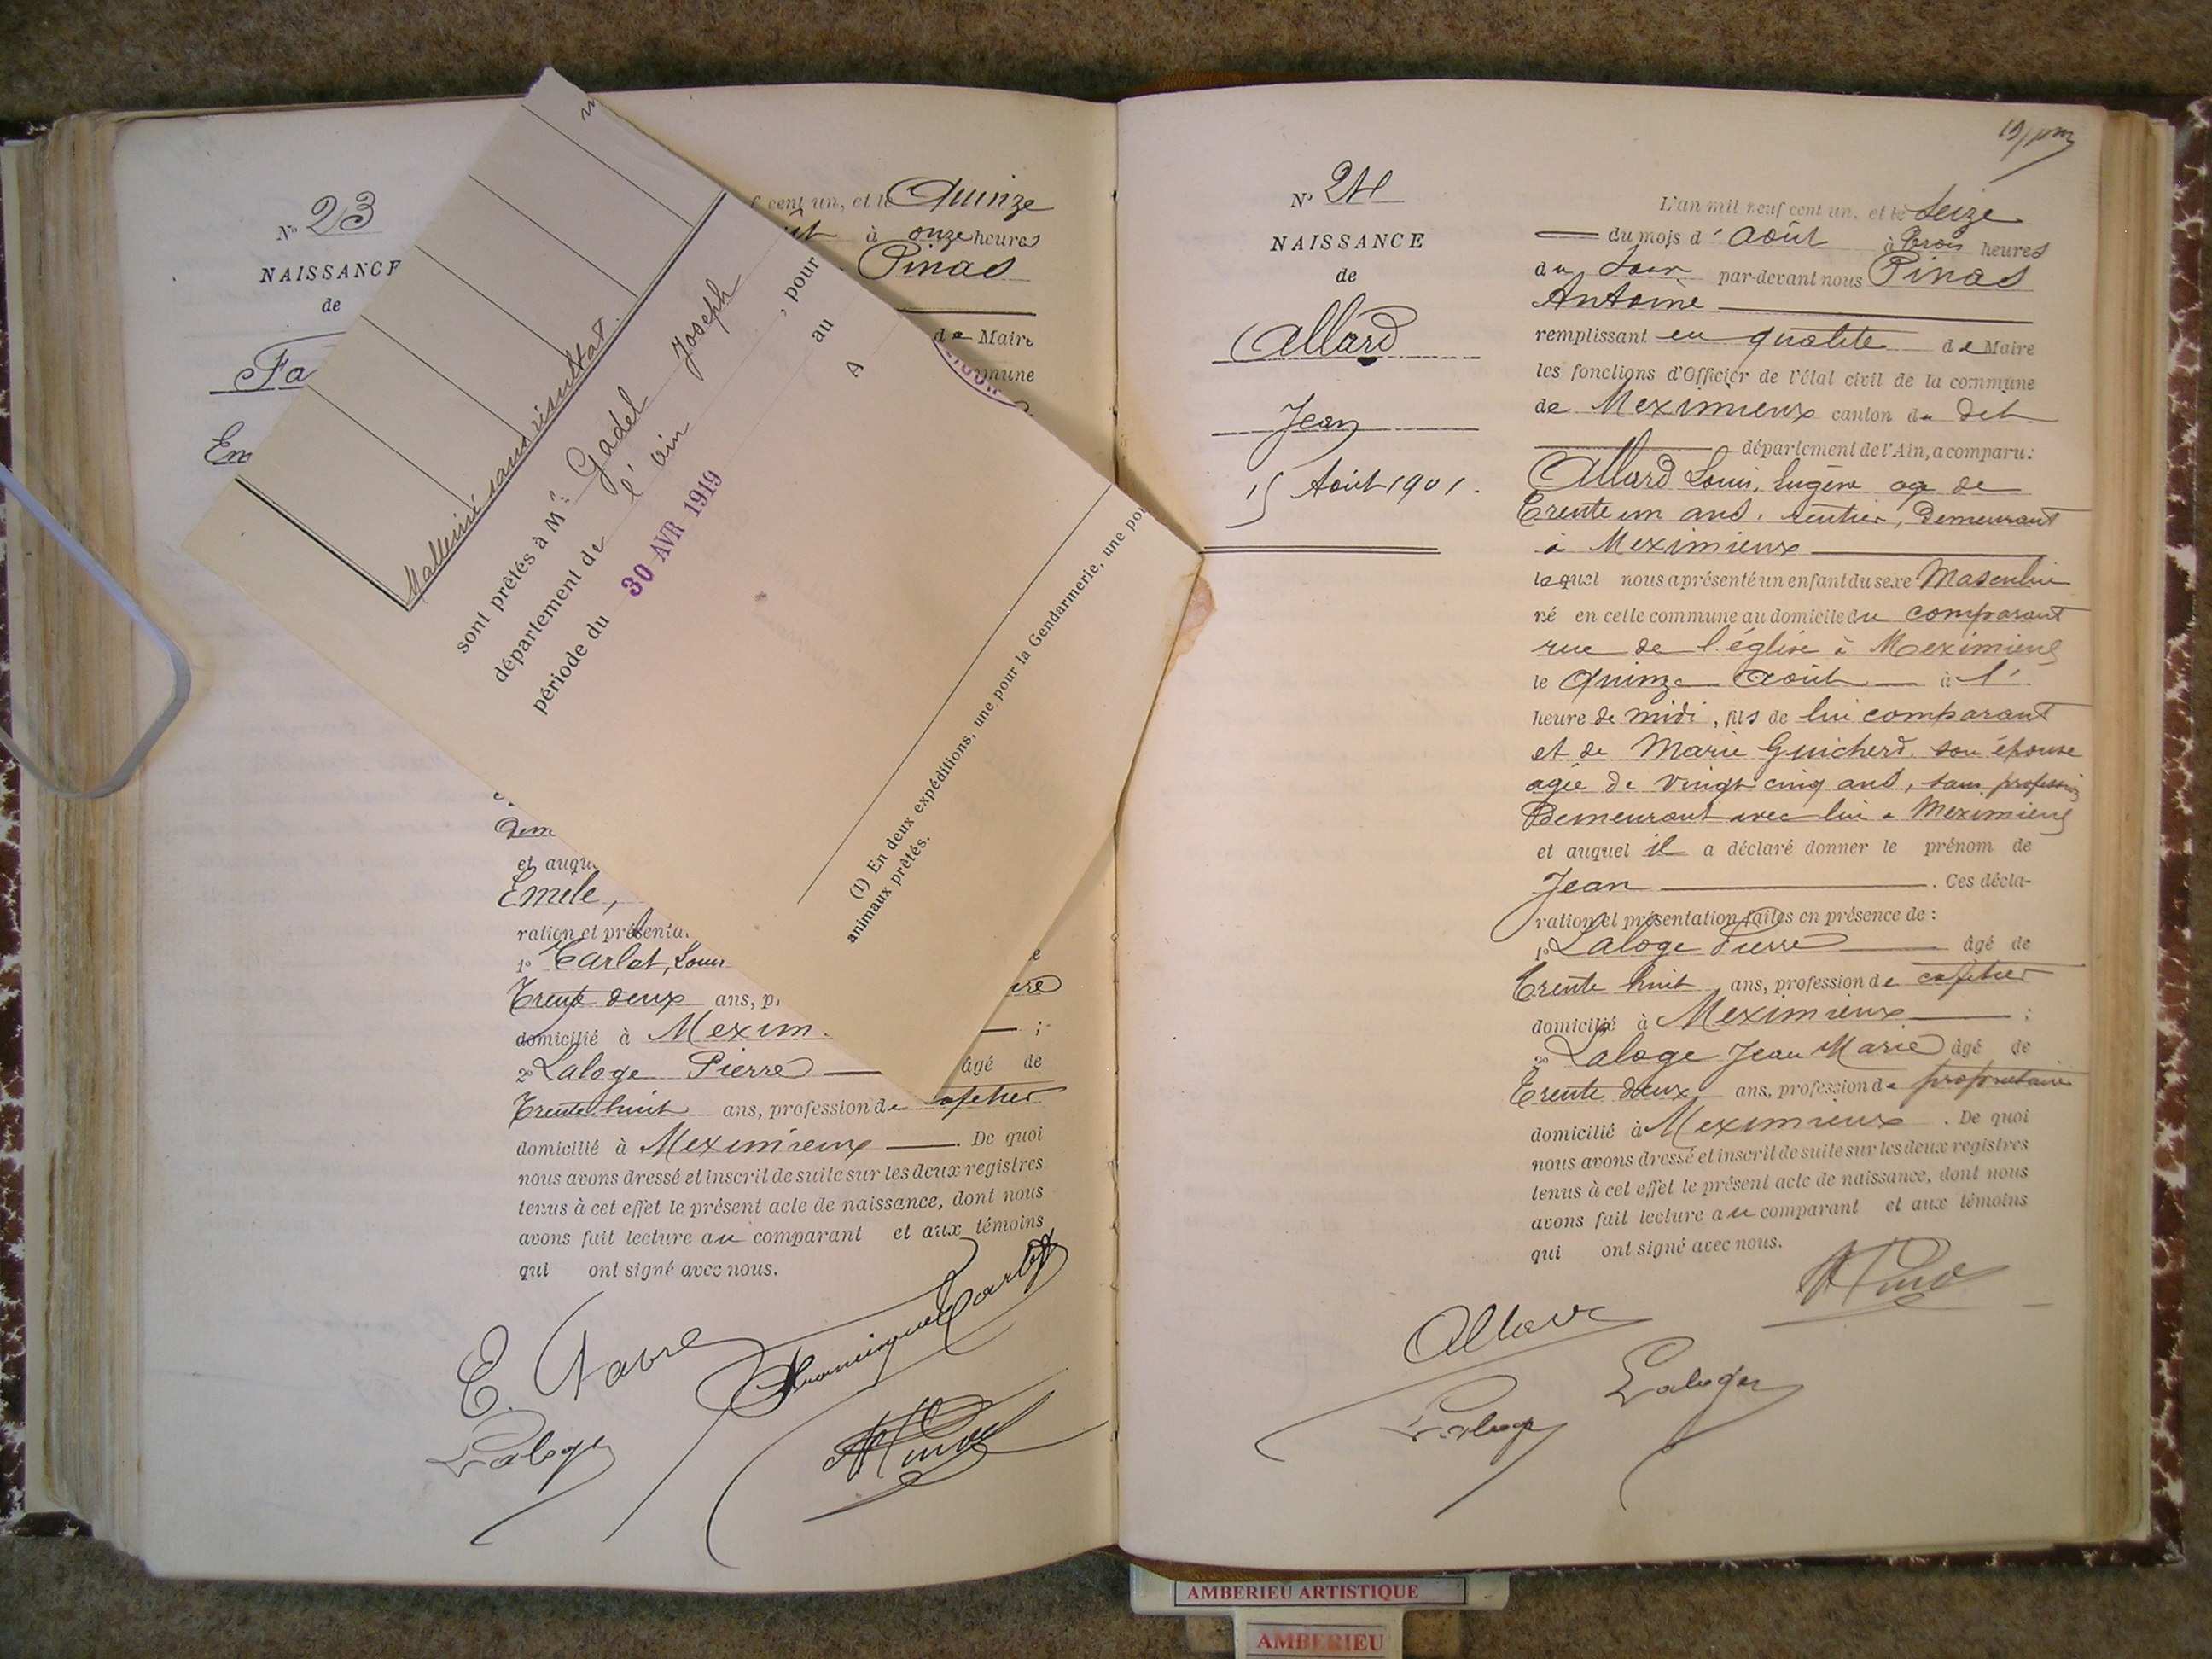 N° 23
NAISSANCE
de
Fa
Em
cent un, et le Quinze
à onze heures
Pinas
de Maire
mune
Malleiné sans résultat.
sont prêtés à Mr Gadel Joseph
département de l'ain, pour
période du 30 AVR 1919 au
A
(1) En deux expéditions, une pour la Gendarmerie, une pou
animaux prêtés.
Dem
et auqu
Emele,
ration et présenta
1° Tarlet, Louis
Trente deux ans, p
domicilié à Mexim
;
2° Laloge Pierre — âgé de
Trente huit ans, profession de cafetier
domicilié à Meximieux —. De quoi
nous avons dressé et inscrit de suite sur les deux registres
tenus à cet effet le présent acte de naissance, dont nous
avons fait lecture au comparant et aux témoins
qui ont signé avec nous.
E. Favre
Laloge
19
N° 24
NAISSANCE
de
Allard
Jean
15 Août 1901.
L'an mil neuf cent un, et le Seize
— du mois d'Août à trois heures
du Soir par-devant nous Pinas
Antoine —
remplissant en qualité de Maire
les fonctions d'Officier de l'état civil de la commune
de Meximieux canton du dit
— département de l'Ain, a comparu:
Allard Louis, Eugène agé de
Trente un ans, rentier, Demeurant
à Meximieux —
lequel nous a présenté un enfant du sexe Masculin
né en cette commune au domicile du comparant
rue de l'église à Meximieux
le Quinze Août — à l'
heure de midi, fils de lui comparant
et de Marie Guicherd son épouse
agée de vingt cinq ans, sans profession
Demeurant avec lui à Meximieux
et auquel il a déclaré donner le prénom de
Jean —. Ces décla-
ration et présentation faites en présence de :
1° Laloge Pierre — âgé de
Trente huit ans, profession de cafetier
domicilié à Meximieux — ;
2° Laloge Jean Marie âgé de
Trente deux ans, profession de propriétaire
domicilié à Meximieux. De quoi
nous avons dressé et inscrit de suite sur les deux registres
tenus à cet effet le présent acte de naissance, dont nous
avons fait lecture au comparant et aux témoins
qui ont signé avec nous.
Allard
Laloge
Laloge
AMBERIEU ARTISTIQUE
AMBERIEU